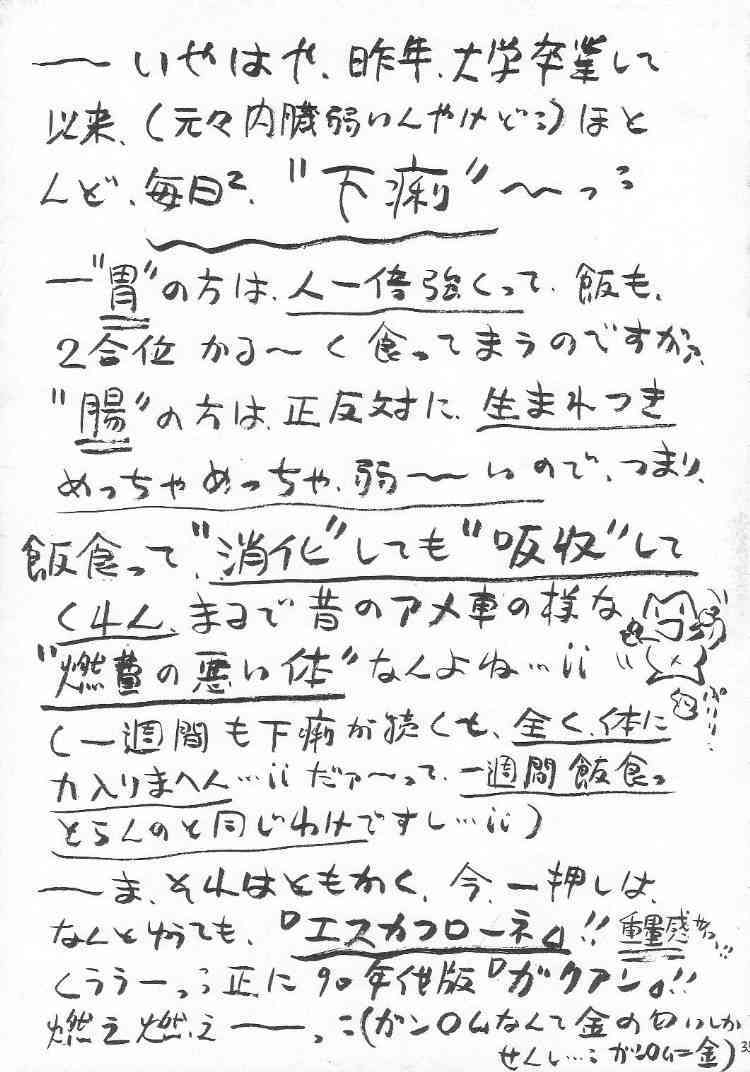 ── いやはや、昨年、大学卒業して
以来、(元々内臓弱いんやけど…)ほと
んど、毎日²、"下痢"〜っ…
─"胃"の方は、人一倍強くって、飯も、
2合位かる〜く食ってまうのですがァ、
"腸"の方は、正反対に、生まれつき
めっちゃめっちゃ、弱──いので、つまり、
飯食って、"消化"しても"吸収"して
くれん、まるで昔のアメ車の様な
"燃費の悪い体"なんよね…ii
ぷりり…
(一週間も下痢が続くと、全く、体に
力入りまへん…ii だァ〜って、一週間飯食っ
とらんのと同じわけですし…ii)
──ま、それはともかく、今、一押しは、
なんと行っても、『エスカフローネ』!! 重量感がっ…!!
くぅうーっ…正に90年代版『ガクアン』!!
燃え燃え──っ…(ガンOムなんて金の匂いしか
せんし…ガンOム=金)
35